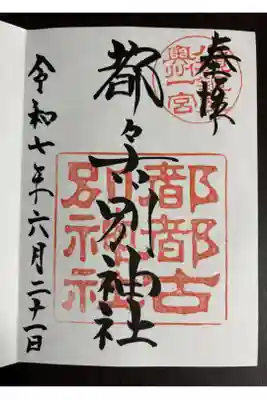 奉拝
都々古別神社
都都古
別神社
令和七年六月二十一日